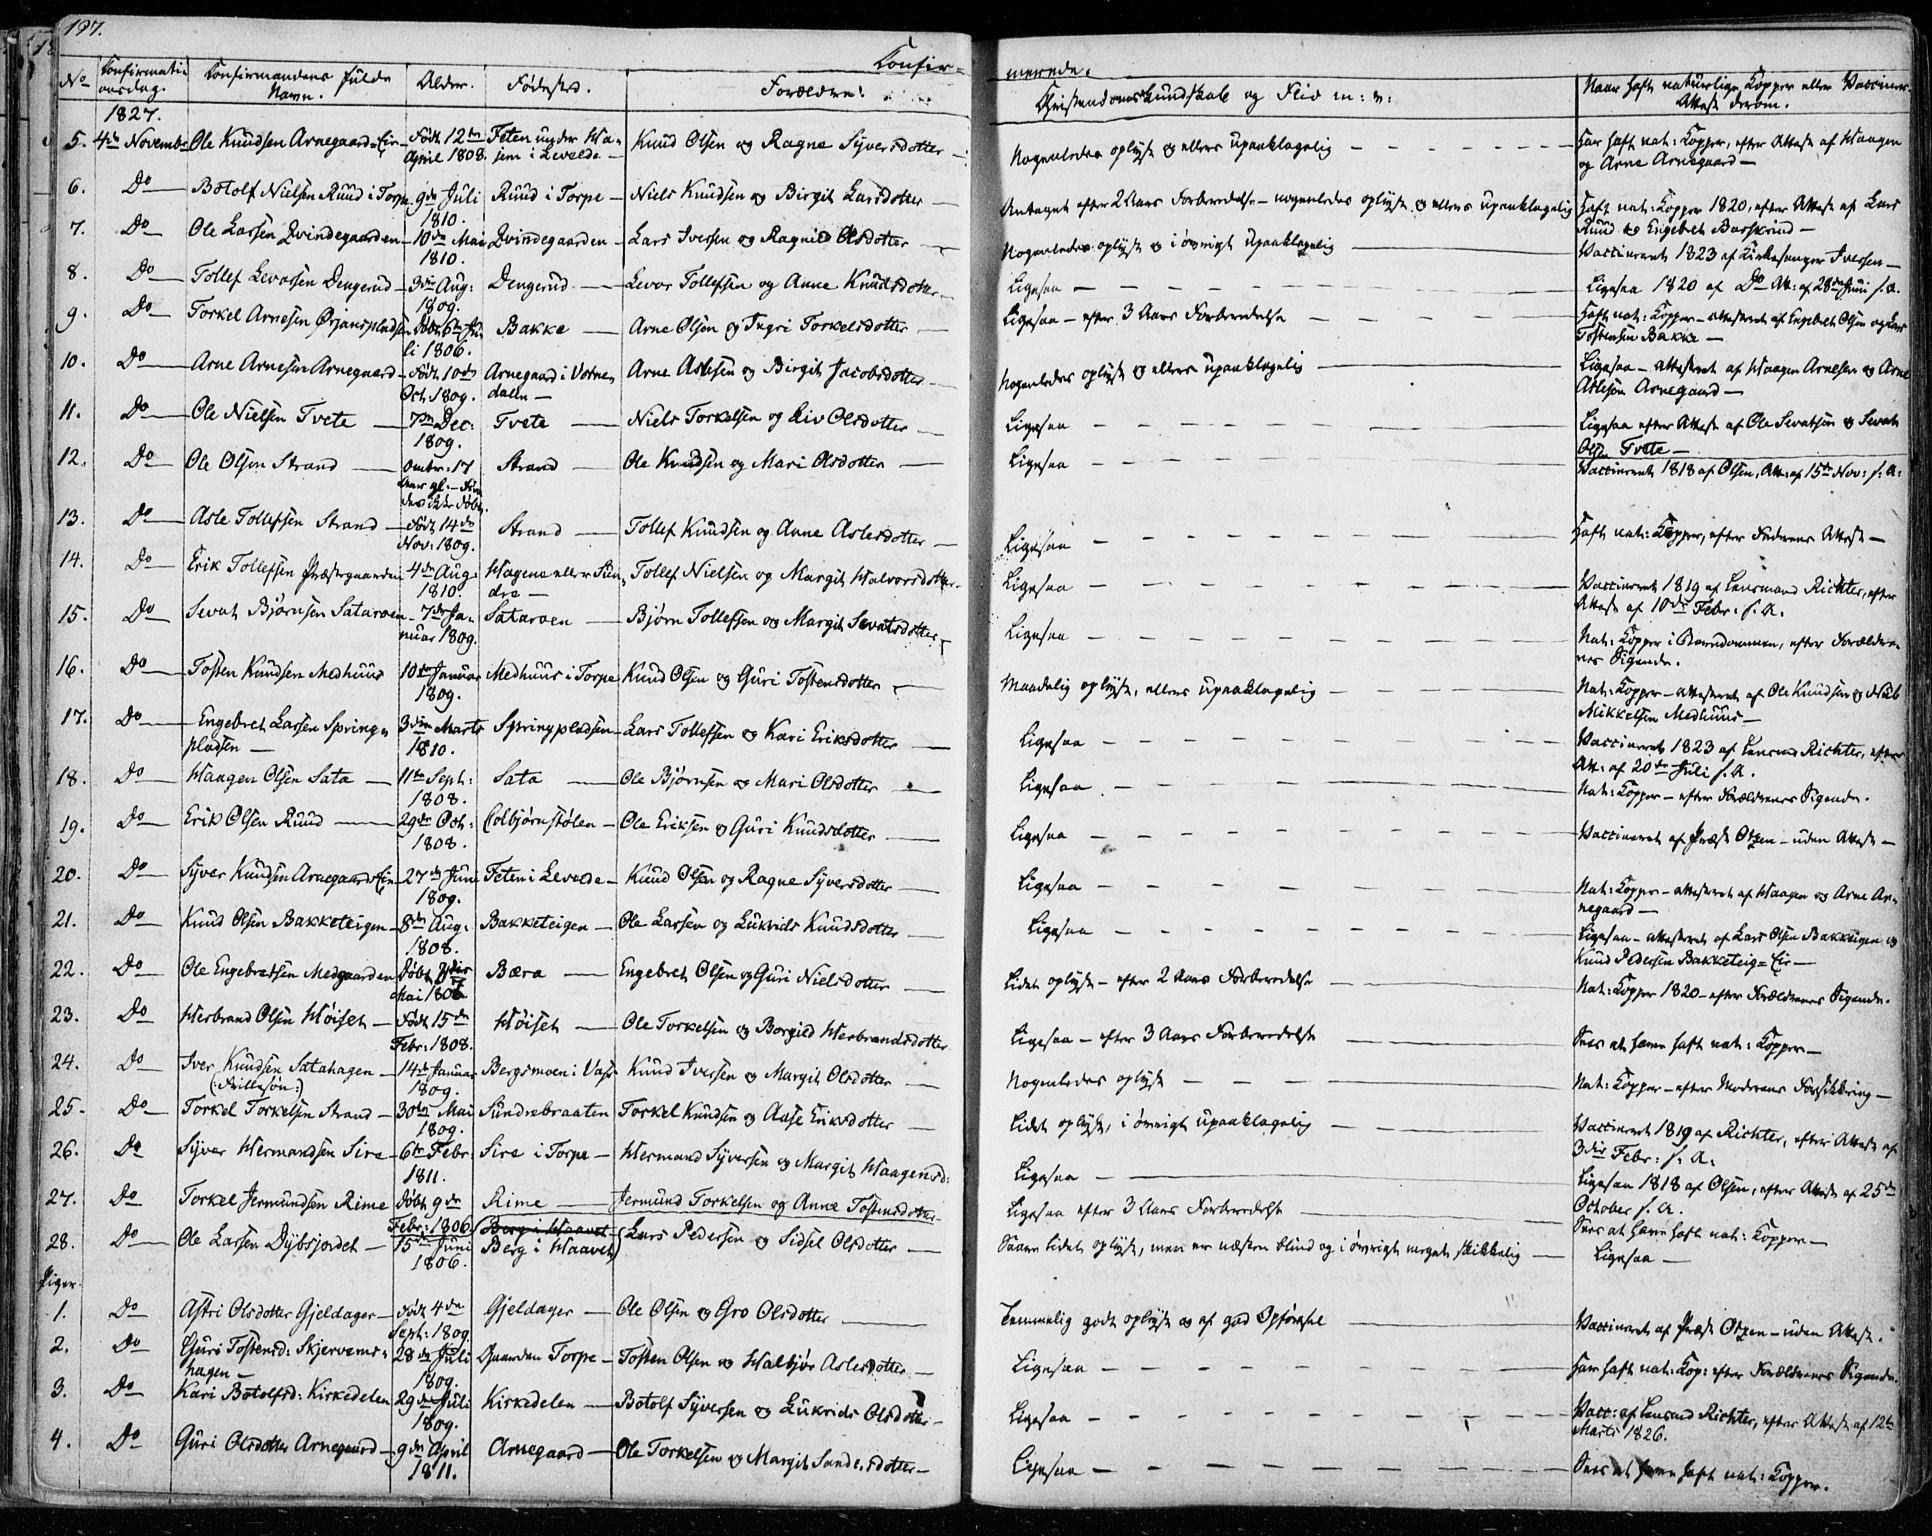 197.
Konfir=
merede.
No Konfirmati= Konfirmandens fulde Alder. Fødested. Forældre. Christendoms Kundskab og Flid m: v: Naar haft naturlige Kopper eller Vaccinen.
onsdag. Navn. Attest derom.
1827.
5. 4de Novembr Ole Knudsen Arnegaards Eie Født 12te Feten under Haa= Knud Olsen og Ragne Syversdotter Nogenledes oplyst og ellers upaaklagelig Har haft nat: Kopper, efter Attest af Haagen
April 1808. sen i Levelde og Arne Arnegaard
6. Do Botolf Nielsen Ruud i Torpe 9de Juli Ruud i Torpe Niels Knudsen og Birgit Larsdotter Antaget efter 2 Aars Forberedelse - nogenledes oplyst og ellers upaaklagelig Haft nat: Kopper 1820, efter Attest af Lars
1810. Ruud og Engebret Barskrud
7. Do Ole Larsen Qvindegaarden 10de Mai Qvindegaarden Lars Iversen og Ragnild Olsdotter Nogenledes oplyst og i øvrigt upaaklagelig Vaccineret 1823 af Kirkesanger Iversen
1810.
8. Do Tollef Levorsen Dengerud 3die Aug: Dengerud Levor Tollefsen og Anne Knudsdotter Ligesaa Ligesaa 1820 af Do Att: af 28de Juni s. A.
1809.
9. Do Torkel Arnesen Ørjanspladsen Døbt 6te Ju= Bakke Arne Olsen og Ingri Torkelsdotter Ligesaa - efter 3 Aars Forberedelse Haft nat: Kopper - attesteret af Engebret Olsen og Lars
li 1806. Tostensen Bakke
10. Do Arne Arnesen Arnegaard Født 10de Arnegaard i Votne= Arne Aslesen og Birgit Jacobsdotter Nogenledes oplyst og ellers upaaklagelig Ligesaa - attesteret af Haagen Arnesen og Arne
Oct 1809. dalen Aslesen Arnegaard
11. Do Ole Nielsen Tvete 7de Dec: Tvete Niels Torkelsen og Liv Olsdotter Ligesaa Ligesaa efter Attest af Ole Sevatsen og Sevat
1809. Olsen Tvete
12. Do Ole Olsen Strand omtr: 17 Strand Ole Knudsen og Mari Olsdotter Ligesaa Vaccineret 1818 af Olsen, Att: af 15te Nov: s. A:
Aar gl:
13. Do Asle Tollefsen Strand Født 14de Strand Tollef Knudsen og Anne Aslesdotter Ligesaa Haft nat: Kopper, efter Faderens Attest
Nov: 1809.
14. Do Erik Tollefsen Præstegaarden 4de Aug: Hagene eller Sun= Tollef Nielsen og Margit Halvorsdotter Ligesaa Vaccineret 1819 af Lensmand Richter, efter
1810. dre Attest af 10de Febr: s. A.
15. Do Sevat Bjørnsen Sataroen 7de Ja= Sataroen Bjørn Tollefsen og Margit Sevatsdotter Ligesaa Nat: Kopper i Barndommen, efter Forældre=
nuar 1809. nes Sigende.
16. Do Tosten Knudsen Medhuus 10de Januar Medhuus i Torpe Knud Olsen og Guri Tostensdotter Maadelig oplyst, ellers upaaklagelig Nat: Kopper - attesteret af Ole Knudsen og
1809. Mikkelsen Medhuus
17. Do Engebret Larsen Spring= 3die Marts Springpladsen Lars Tollefsen og Kari Eriksdotter Ligesaa Vaccineret 1823 af Lensmd Richter, efter
pladsen 1810. Att: af 20de Juli s. A.
18. Do Haagen Olsen Sata 11te Sept: Sata Ole Bjørnsen og Mari Olsdotter Ligesaa Nat: Kopper - efter Forældrenes Sigende.
1808.
19. Do Erik Olsen Ruud 29de Oct: Colbjørnstølen Ole Eriksen og Guri Knudsdotter Ligesaa Vaccineret af Præst Otzen - uden Attest
1808.
20. Do Syver Knudsen Arnegaards Eie 27de Juni Feten i Levelde Knud Olsen og Ragne Syversdotter Ligesaa Nat: Kopper - attesteret af Haagen og Arne Ar=
1809. negaard
21. Do Knud Olsen Bakketeigen 8de Aug: Bakketeigen Ole Larsen og Lukrids Knudsdotter Ligesaa Ligesaa - attesteret af Lars Olsen Bakketeigen og
1808. Knud Pedersen Bakketeig= Eie
22. Do Ole Engebretsen Medgaarden Døbt 3die Bæra Engebret Olsen og Guri Nielsdotter Lidet oplyst - efter 2 Aars Forberedelse Nat: Kopper 1820 - efter Forældrenes Sigende.
Mai 1807
23. Do Herbrand Olsen Høiset Født 15de Høiset Ole Torkelsen og Borgild Herbrandsdotter Ligesaa - efter 3 Aars Forberedelse Sees at have haft nat: Kopper
Febr: 1808.
24. Do Iver Knudsen Satahagen 14de Januar Bergsmoen i Vass Knud Iversen og Margit Olsdotter Nogenledes oplyst Nat: Kopper - efter Moderens Forsikkring
1809.
25. Do Torkel Torkelsen Strand 30te Mai Sundrebraaten Torkel Knudsen og Aase Eriksdotter Lidet oplyst, i øvrigt upaaklagelig Vaccineret 1819 af Richter, efter Attest af
1809. 3die Febr: s. A:
26. Do Syver Hermandsen Sire 6te Febr Sire i Torpe Hermand Syversen og Margit Haagensd: Ligesaa Ligesaa 1818 af Olsen, efter Attest af 25de
1811. October s. A.
27. Do Torkel Jermundsen Rime Døbt 9de Rime Jermund Torkelsen og Anne Tostensdotter Ligesaa efter 3 Aars Forberedelse Sees at have haft nat: Kopper
Febr: 1806 Berg i Haavet
28. Do Ole Larsen Dybsjordet 15de Juni Berg i Haavet Lars Pedersen og Sidsel Olsdotter Saare lidet oplyst, men er næsten blind og i øvrigt meget skikkelig Ligesaa
1806.
Piger.
1. Do Astri Olsdotter Gjeldager Født 4de Gjeldager Ole Olsen og Gro Olsdotter Temmelig godt oplyst og af god Opførsel Vaccineret af Præst Otzen - uden Attest.
Sept: 1809
2. Do Guri Tostensd: Skjervems= 28de Juli Gaarden Torpe Tosten Olsen og Halbjør Aslesdotter Ligesaa Har haft nat: Kop: efter Forældrenes Sigende.
hagen 1809.
3. Do Kari Botolfsd: Kirkedelen 29de Juli Kirkedelen Botolf Syversen og Lukrids Olsdotter Ligesaa Vacc: af Lensmd Richter, efter Attest af 12te
1809. Marts 1826.
4. Do Guri Olsdotter Arnegaard 9de April Arnegaard Ole Torkelsen og Margit Sandersdotter Ligesaa Sees at have haft nat: Kopper.
1811.